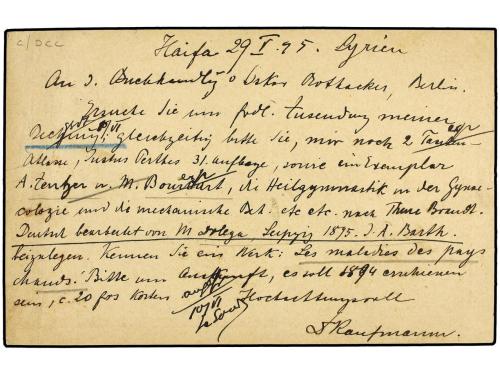 C/DCC
Haifa 29 V. 95. Syrien
An d. Buchhandlg v Oskar Rothacker, Berlin.
Ersuche Sie um frdl. Zusendung meiner
Rechnung. Gleichzeitig bitte Sie, mir noch 2 Taschen-
Atlasse, Justus Perthes 31. Auflage, sowie ein Exemplar
A. Fentzer u. M. Bourcart, die Heilgymnastik in der Gynae-
cologie und die mechanische Beh. etc etc. nach Thure Brandt.
Deutsch bearbeitet von M Dolega, Leipzig 1895. J. A. Barth.
beizulegen. Kennen Sie ein Werk: Les maladies des pays
chauds. Bitte um Auskunft, es soll 1894 erschienen
sein, c. 20 fcs kosten
Hochachtungsvoll
Dr Kaufmann.